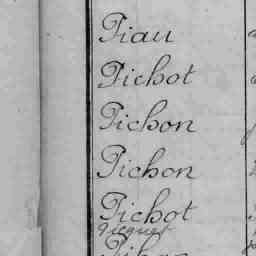 Piau
Pichot
Pichon
Pichon
Pichot
Picquet